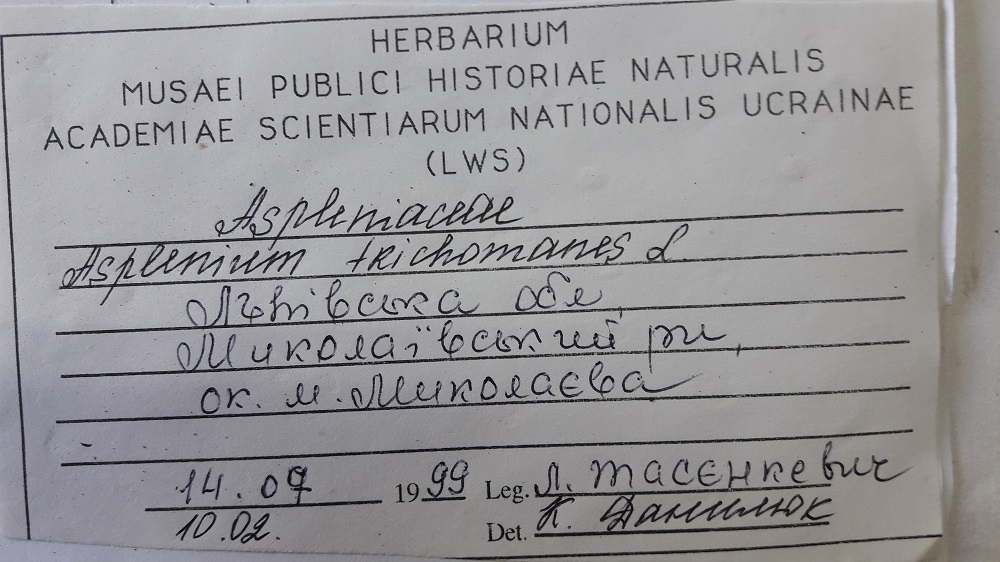 HERBARIUM
MUSAEI PUBLICI HISTORIAE NATURALIS
ACADEMIAE SCIENTIARUM NATIONALIS UCRAINAE
(LWS)
Aspleniaceae
Asplenium trichomanes L
Львівська обл,
Миколаївський р-н,
ок. м. Миколаєва
14.07 1999 Leg. Л. Тасєнкевич
10.02. Det. К. Данилюк